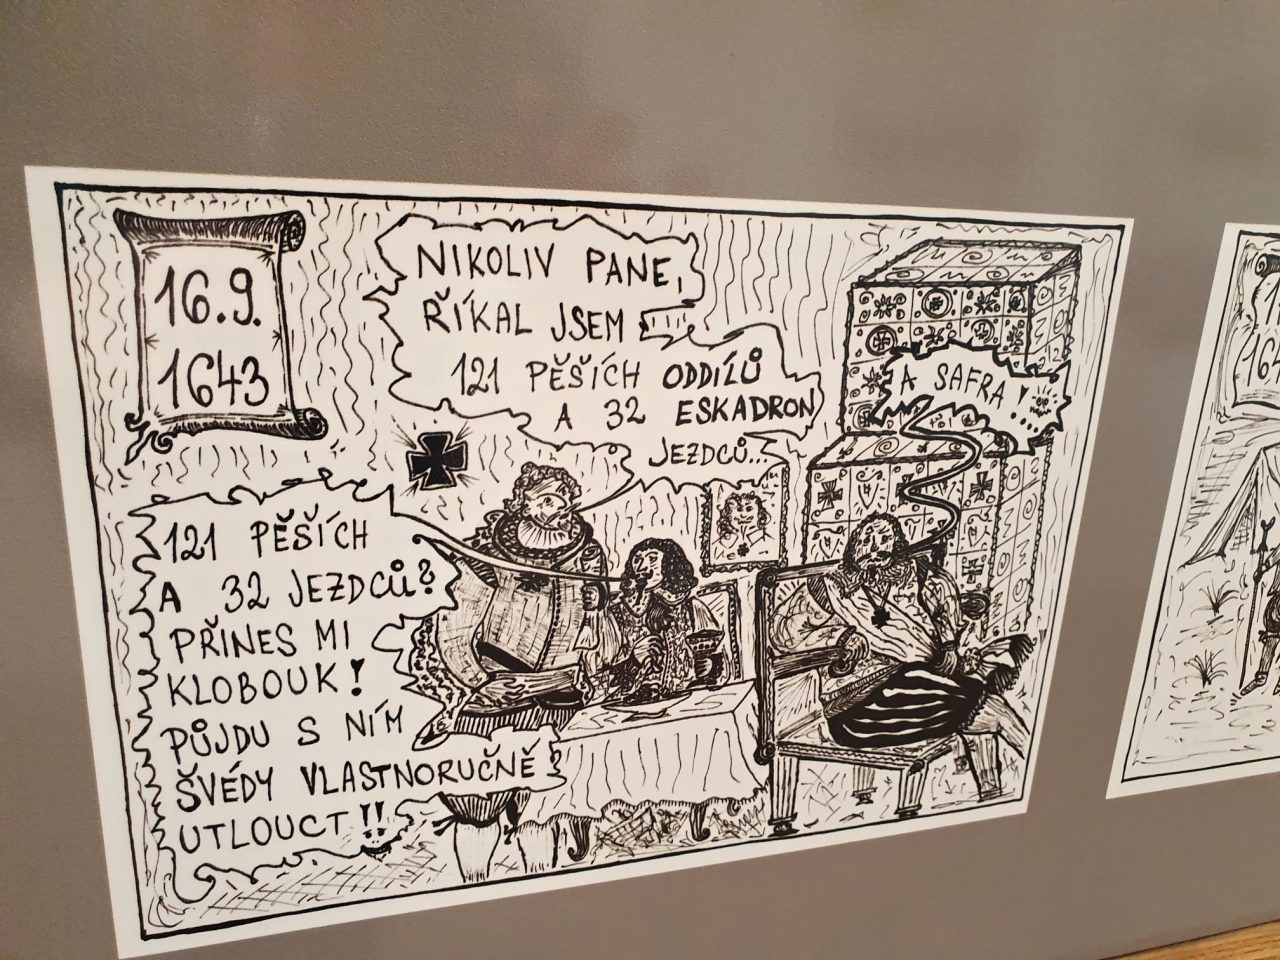 16.9.
1643
NIKOLIV PANE,
ŘÍKAL JSEM
121 PĚŠÍCH ODDÍLŮ
A 32 ESKADRON
JEZDCŮ...
A SAFRA!...
121 PĚŠÍCH
A 32 JEZDCŮ?
PŘINES MI
KLOBOUK!
PŮJDU S NÍM
ŠVÉDY VLASTNORUČNĚ
UTLOUCT!!